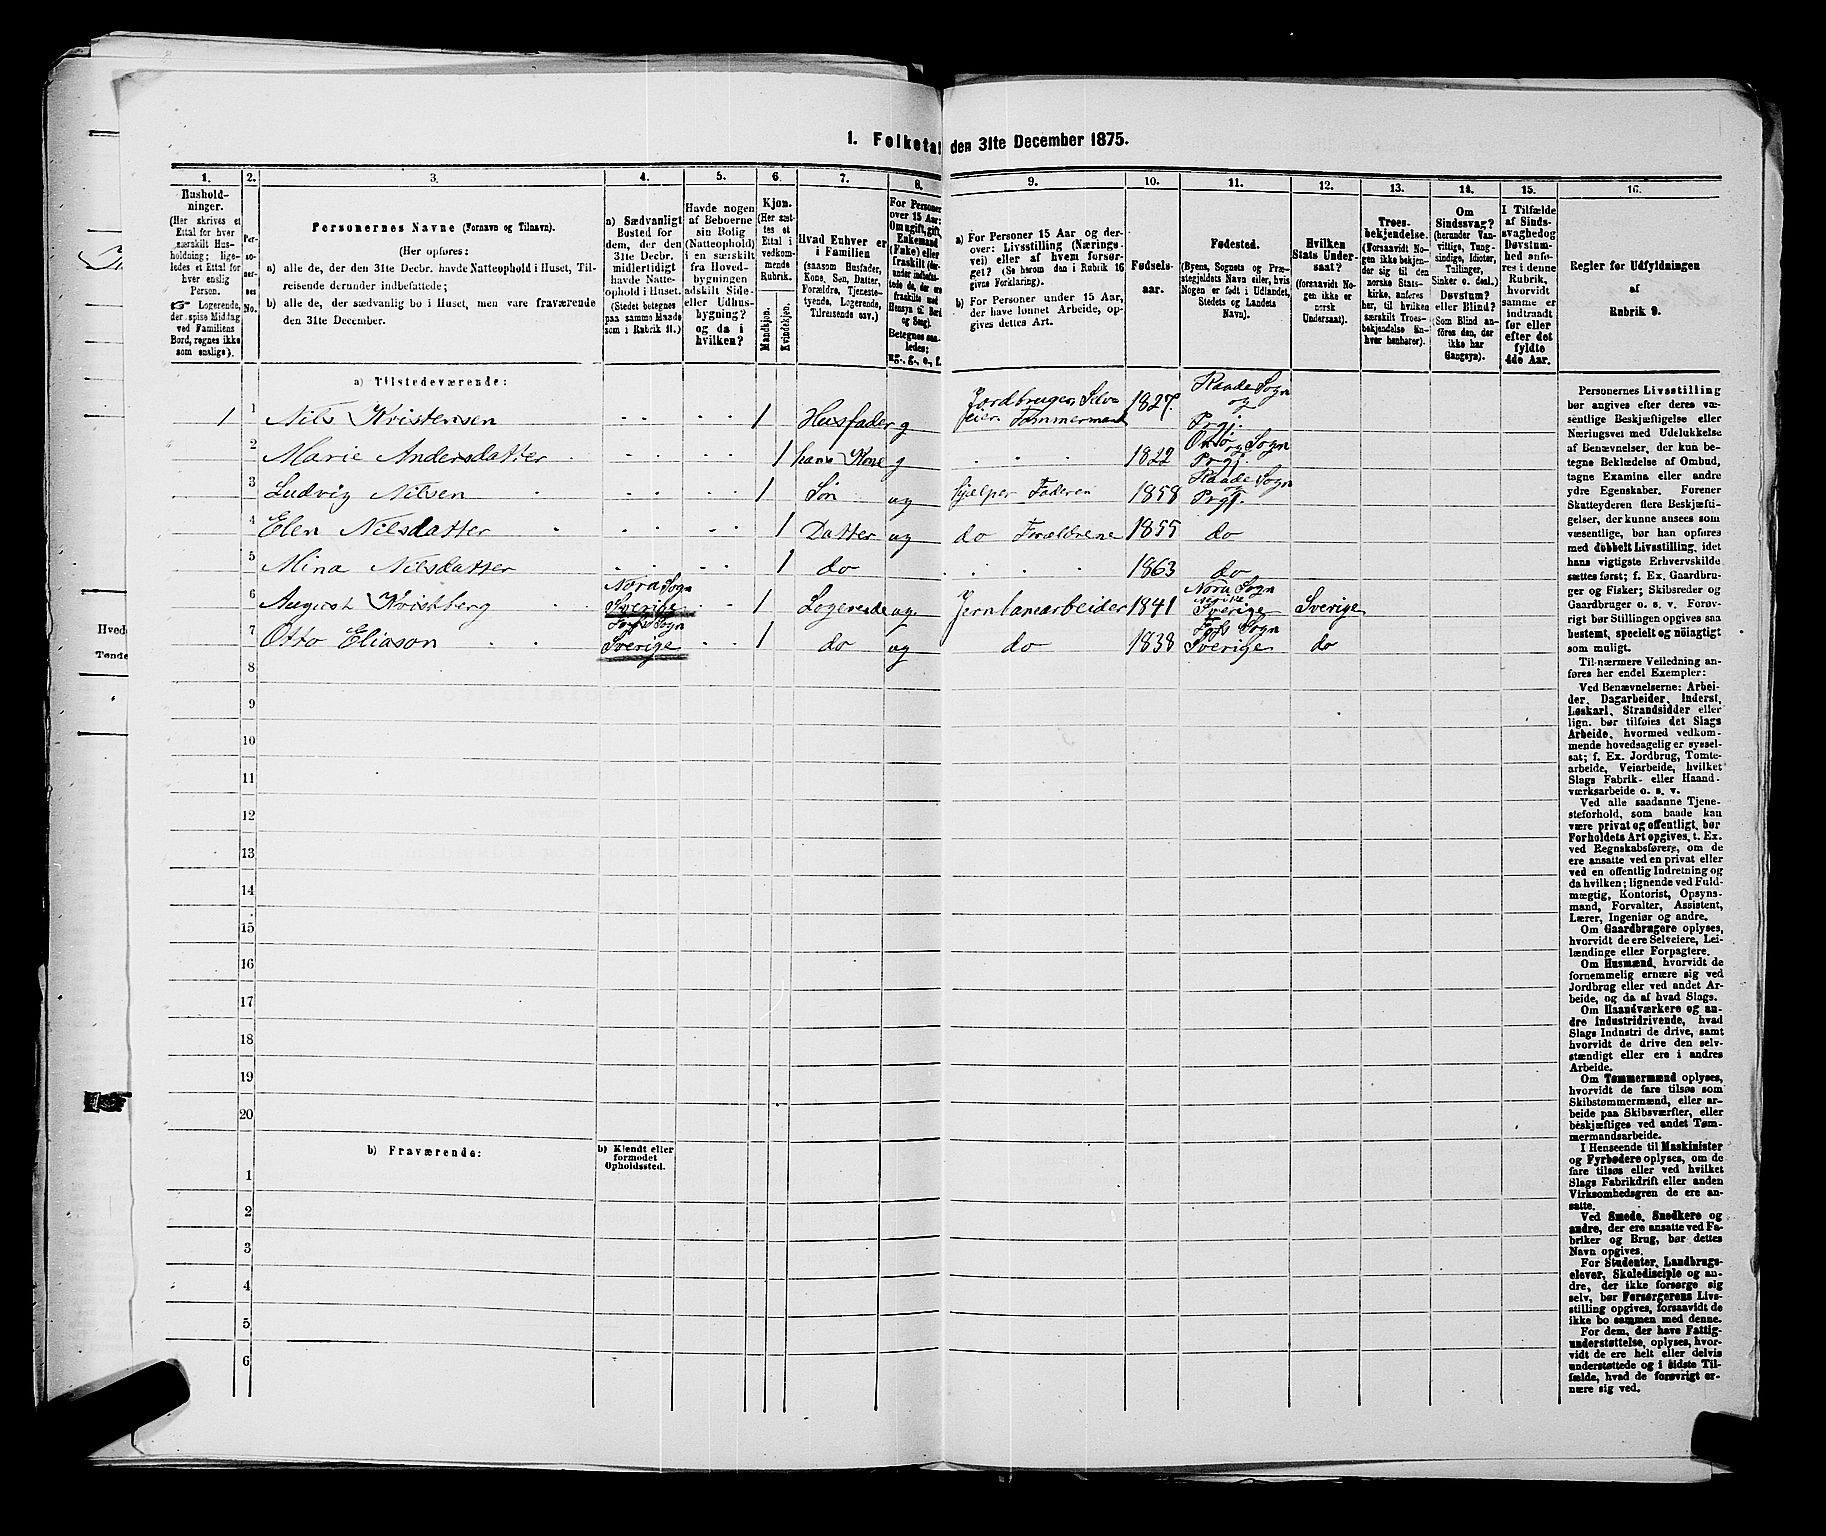 1. Folketal den 31te December 1875.
1.
2.
3.
4.
5.
6.
7.
8.
9.
10.
11.
12.
13.
14.
15.
16.
Hushold-
ninger.
(Her skrives et
Ettal for hver
særskilt Hus-
holdning; lige-
ledes et Ettal for
hver enslig
Person.
Logerende,
der spise Middag
ved Familiens
Bord, regnes ikke
som enslige).
Per-
so-
ner-
nes
No.
Personernes Navne (Fornavn og Tilnavn).
(Her opføres:
a) alle de, der den 31te Decbr. havde Natteophold i Huset, Til-
reisende derunder indbefattede;
b) alle de, der sædvanlig bo i Huset, men vare fraværende
den 31te December.
a) Sædvanligt
Bosted for
dem, der den
31te Decbr.
midlertidigt
havde Natte-
ophold i Huset.
(Stedet betegnes
paa samme Maade
som i Rubrik 11.)
Havde nogen
af Beboerne
sin Bolig
(Natteophold)
i en særskilt
fra Hoved-
bygningen
adskilt Side-
eller Udhus-
bygning?
og da i
hvilken?
Kjøn.
(Her sæt-
tes et
Ettal i
vedkom-
mende
Rubrik.
Mandkjøn.
Kvindekjøn.
Hvad Enhver er
i Familien
(saasom Husfader,
Kone, Søn, Datter,
Forældre, Tjeneste-
tyende, Logerende,
Tilreisende osv.)
For Personer
over 15 Aar:
Om ugift, gift,
Enkemand
(Enke) eller
fraskilt
Hensyn til Bord
og Seng).
Betegnes saa-
ledes:
ug., g., e., f.
a) For Personer 15 Aar og der-
over: Livsstilling (Nærings-
vei) eller af hvem forsør-
get? (Se herom den i Rubrik 16
givne Forklaring).
b) For Personer under 15 Aar,
der have lønnet Arbeide, op-
gives dettes Art.
Fødsels-
aar.
Fødested.
(Byens, Sognets og Præ-
stegjeldets Navn eller, hvis
Nogen er født i Udlandet,
Stedets og Landets
Navn).
Hvilken
Stats Under-
saat?
(forsaavidt No-
gen ikke er
norsk
Undersaat).
Troes-
bekjendelse.
(Forsaavidt No-
gen ikke bekjen-
der sig til den
norske Stats-
kirke, anføres
her, til hvilken
særskilt Troes-
bekjendelse En-
hver henhører).
Om
Sindssvag?
(herunder Van-
vittige, Tung-
sindige, Idioter,
Tullinger,
Sinker o. desl.)
Døvstum?
eller Blind?
(Som Blind an-
føres den, der
ikke har
Gangsyn).
I Tilfælde
af Sinds-
svaghed og
Døvstum-
hed anfø-
res i denne
Rubrik,
hvorvidt
samme er
indtraadt
før eller
efter det
fyldte
4de Aar.
Regler for Udfyldningen
af
Rubrik 9.
a) Tilstedeværende:
1 1 Nils Kristensen 1 Husfader g Jordbruger, Selv-
eier Tømmermand 1827. Raade Sogn
og
Prgj.
2 Marie Andersdatter 1 hans Kone g 1822 Onsø Sogn
Prgj.
3 Ludvig Nilsen 1 Søn ug hjælper Faderen 1858 Raade Sogn
og
Prgj.
4 Elen Nilsdatter 1 Datter ug do Forældrene 1855 do
5 Mina Nilsdatter 1 do 1863 do
6 August Kvistberg Nora Sogn
Sverige 1 Logerende ug Jernbanearbeider 1841 Nora Sogn
Sverige Sverige
7 Otto Eliason Sogn
Sverige 1 do ug do 1838 Sogn
Sverige do
8
9
10
11
12
13
14
15
16
17
18
19
20
b) Fraværende:
b) Kjendt eller
formodet
Opholdssted.
1
2
3
4
5
6
Personernes Livsstilling
bør angives efter deres væ-
sentlige Beskjæftigelse eller
Næringsvei med Udelukkelse
af Benævnelser, der kun be-
tegne Beklædelse af Ombud,
tagne Examina eller andre
ydre Egenskaber. Forener
Skatteyderen flere Beskjæfti-
gelser, der kunne ansees som
væsentlige, bør han opføres
med dobbelt Livsstilling, idet
hans vigtigste Erhvervskilde
sættes først; f. Ex. Gaardbru-
ger og Fisker; Skibsreder og
Gaardbruger o. s. v. Forøv-
rigt bør Stillingen opgives saa
bestemt, specielt og nøiagtigt
som muligt.
Til nærmere Veiledning an-
føres her endel Exempler:
Ved Benævnelserne: Arbei-
der, Dagarbeider, Inderst,
Løskarl, Strandsidder eller
lign. bør tilføies det Slags
Arbeide, hvormed vedkom-
mende hovedsagelig er syssel-
sat; f. Ex. Jordbrug, Tomte-
arbeide, Veiarbeide, hvilket
Slags Fabrik- eller Haand-
værksarbeide o. s. v.
Ved alle saadanne Tjene-
steforhold, som baade kan
være privat og offentligt, bør
Forholdets Art opgives, t. Ex.
ved Regnskabsførere, om de
ere ansatte ved en privat eller
ved en offentlig Indretning og
da hvilken; lignende ved Fuld-
mægtig, Kontorist, Opsyns-
mand, Forvalter, Assistent,
Lærer, Ingeniør og andre.
Om Gaardbrugere oplyses,
hvorvidt de ere Selveiere, Lei-
lændinge eller Forpagtere.
Om Husmænd, hvorvidt de
fornemmelig ernære sig ved
Jordbrug eller ved andet Ar-
beide, og da af hvad Slags.
Om Haandværkere og an-
dre Industridrivende, hvad
Slags Industri de drive, samt
hvorvidt de drive den selv-
stændigt eller ere i andres
Arbeide.
Om Tømmermænd oplyses,
hvorvidt de fare tilsøs som
Skibstømmermænd, eller ar-
beide paa Skibsværfter, eller
beskjæftiges ved andet Tøm-
mermandsarbeide.
I Henseende til Maskinister
og Fyrbødere oplyses, om de
fare tilsøs eller ved hvilket
Slags Fabrikdrift eller anden
Virksomhedsgren de ere an-
satte.
Ved Smede, Snedkere og
andre, der ere ansatte ved Fa-
briker og Brug, bør dettes
Navn opgives.
For Studenter, Landbrugs-
elever, Skoledisciple og an-
dre, der ikke forsørge sig
selv, bør Forsørgerens Livs-
stilling opgives, forsaavidt de
ikke bo sammen med denne.
For dem, der have Fattig-
understøttelse, oplyses, hvor-
vidt de ere helt eller delvis
understøttede og i sidste Til-
fælde, hvad de forøvrigt er-
nære sig ved.
Hvede
Tønde